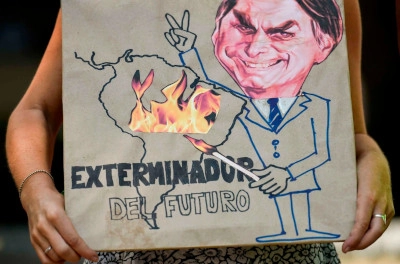 EXTERMINADOR
DEL FUTURO